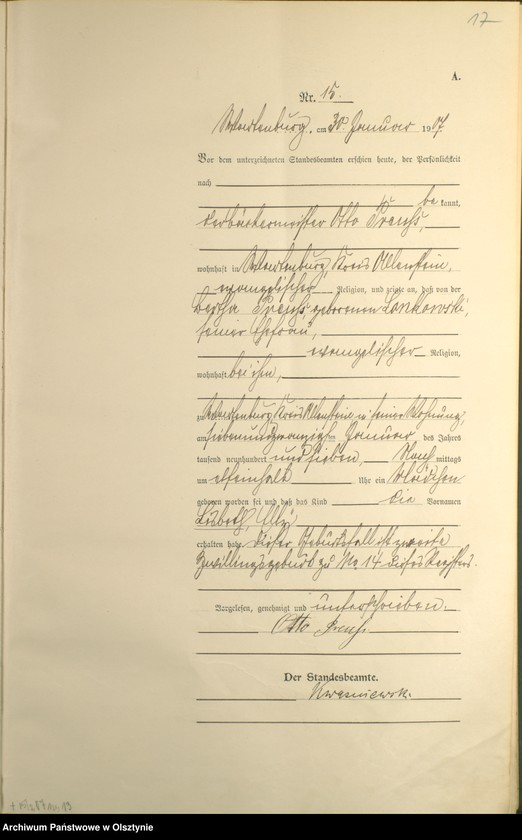 17
A.
Nr. 15.
Wartenburg, am 30. Januar 1907.
Vor dem unterzeichneten Standesbeamten erschien heute, der Persönlichkeit
nach
be kannt,
der Bäckermeister Otto Preuß,
wohnhaft in Wartenburg, Kreis Allenstein,
evangelischer Religion, und zeigte an, daß von der
Bertha Preuß, geborenen Lonkowski,
seiner Ehefrau,
evangelischer Religion,
wohnhaft bei ihm,
zu Wartenburg Kreis Allenstein in seiner Wohnung,
am siebenundzwanzigsten Januar des Jahres
tausend neunhundert und sieben, Nachmittags
um elfeinhalb Uhr ein Mädchen
geboren worden sei und daß das Kind die Vornamen
Lisbeth, Elly
erhalten habe. Dieser Geburtsfall ist zweite
Zwillingsgeburt zu No 14 dieses Registers.
Vorgelesen, genehmigt und unterschrieben.
Otto Preuß.
Der Standesbeamte.
Kwasniewski.
Archiwum Państwowe w Olsztynie